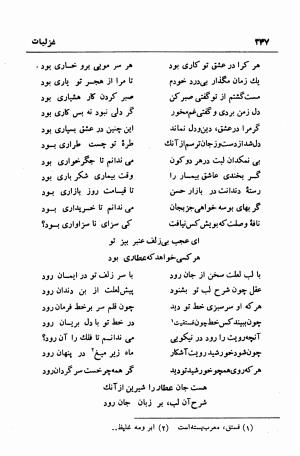 ۳۴۷ غزلیات
هر کرا در عشق تو کاری بود هر سر مویی برو خاری بود
یك زمان مگذار بی‌درد خودم تا مرا از هجر تو یاری بود
مست گشتم از تو گفتی صبر کن صبر کردن کار هشیاری بود
دل ز من بردی و گفتی غم مخور گر دلی نبود نه بس کاری بود
گر مرا در عشق، دین و دل نماند این چنین در عشق بسیاری بود
دل شد از دست و ز جان ترسم از آنك طرهٔ تو چست طراری بود
بی نمکدان لبت در هر دو کون می ندانم تا جگرخواری بود
لب بخندی عاشق بیمار را وقت بیماری شکر باری بود
رستهٔ دندانت در بازار حسن تا قیامت روز بازاری بود
گر بهای بوسه خواهی جز بجان می ندانم تا خریداری بود
نافهٔ وصلت که بویش کس نیافت کی سزای نا سزاواری بود؟
ای عجب بی‌زلف عنبر بیز تو
هر کسی خواهد که عطاری بود
با لب لعلت سخن از جان رود با سر زلف تو در ایمان رود
عقل چون شرح لب تو بشنود پیش لعلت از بن دندان رود
هر که او سرسبزی خط تو دید چون قلم سر بر خط فرمان رود
چون ببیند کس خط چون فستقیت۱ در خط تو با دل بریان رود
آنچه رویت را رود در نیکویی می ندانم تا فلك را آن رود؟
چون شود خورشید رویت آشکار ماه زیر میغ۲ در پنهان رود
هر که روی همچو خورشید تو دید گر همه چرخست سرگردان رود
هست جان عطار را شیرین از آنك
شرح آن لب، بر زبان جان رود
(۱) فستق، معرب پسته است (۲) ابر و مه غلیظ..